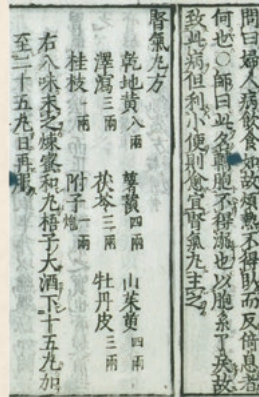 問曰婦人飲食如故煩熱不得臥而反倚息者
何也○師曰此名轉胞不得溺也以胞系了戾故
致此病但利小便則愈宜腎氣丸主之
腎氣丸方
乾地黃八兩 薯蕷四兩 山茱萸四兩
澤瀉三兩 茯苓三兩 牡丹皮三兩
桂枝一兩 附子炮一兩
右八味末之煉蜜和丸梧子大酒下十五丸加
至二十五丸日再服